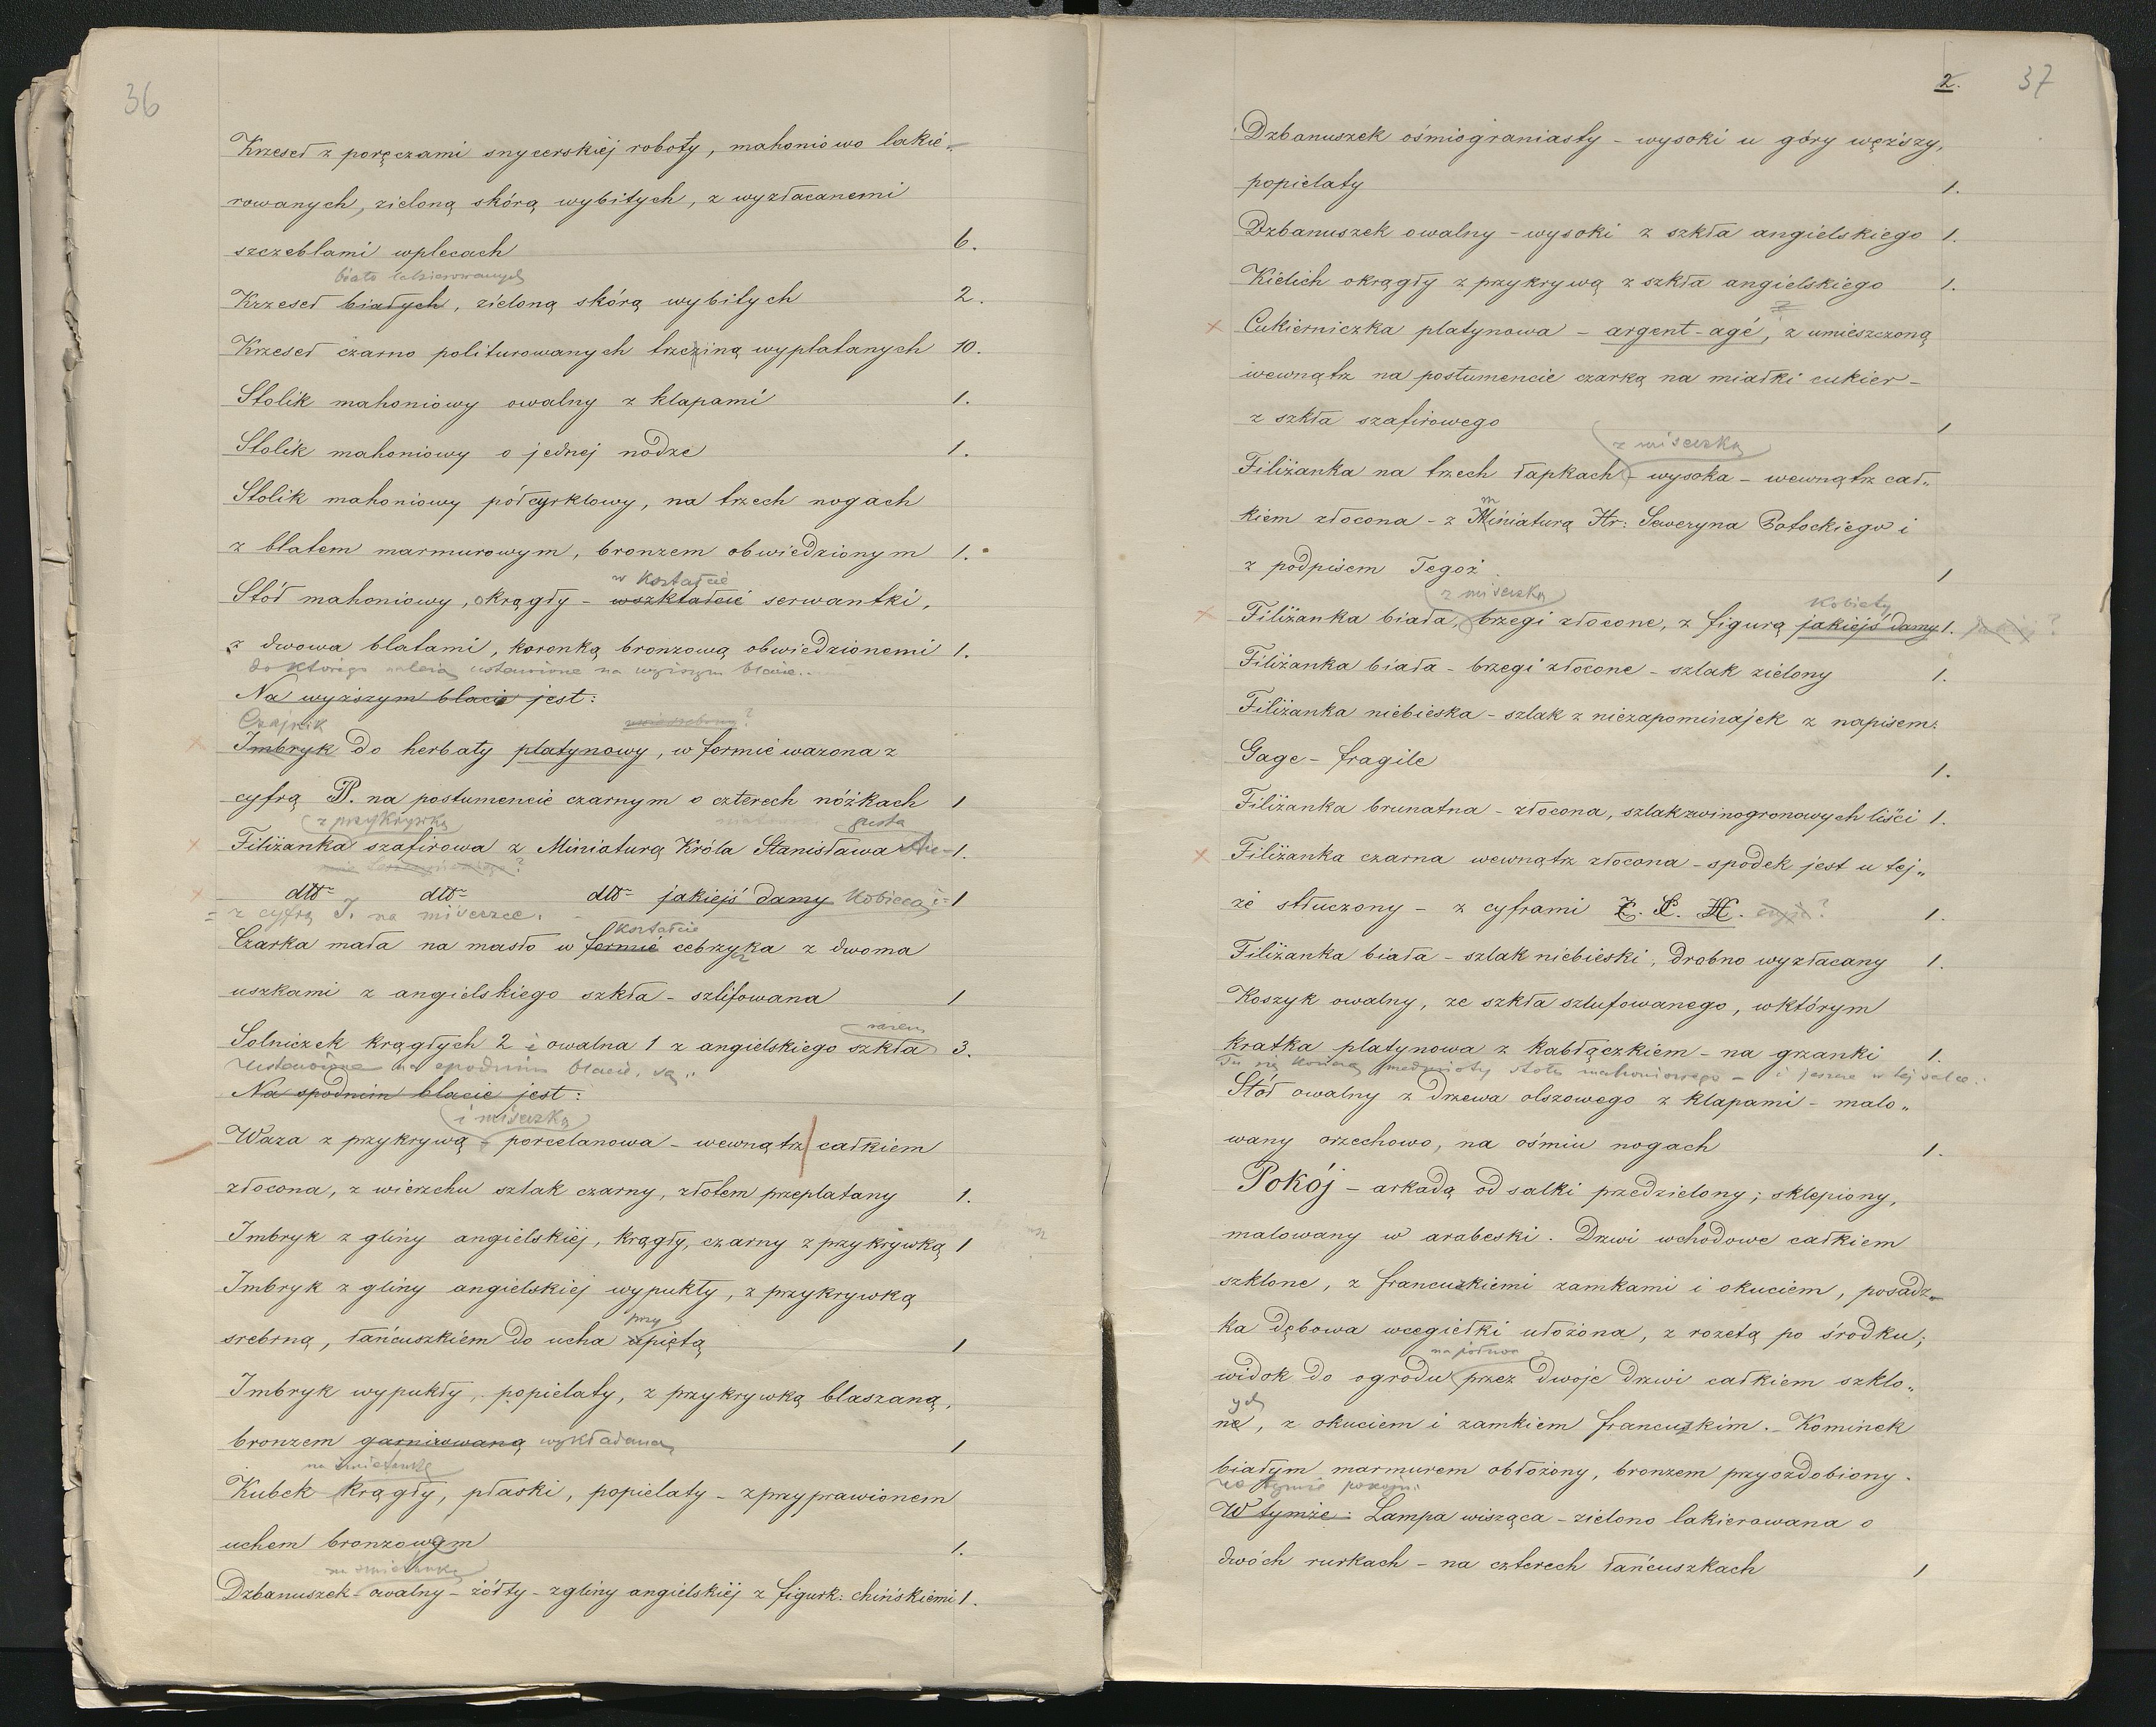 36
Krzeseł z poręczami snycerskiej roboty, mahoniowo lakié-
rowanych, zieloną skórą wybitych, z wyzłacanemi
szczeblami wplecach 6.
biało lakierowanych
Krzeseł białych, zieloną skórą wybitych 2.
Krzeseł czarno politurowanych trzciną wyplatanych 10.
Stolik mahoniowy owalny z klapami 1.
Stolik mahoniowy o jednej nodze 1.
Stolik mahoniowy półcyrklowy, na trzech nogach
z blatem marmurowym, bronzem obwiedzionym 1.
w kształcie
Stół mahoniowy, okrągły - wszktałcié serwantki,
z dwowa blatami, koronką bronzową obwiedzionemi 1.
do którego należą ustawione na wyższym blacie..
Na wyższym blacie jest:
Czajnik
Imbryk do herbaty platynowy, w formie wazona z
cyfrą P. na postumencie czarnym o czterech nóżkach 1
z przykrywką gusta
Filiżanka szafirowa z Miniaturą Króla Stanisława Au- 1.
dtto dtto dtto jakiejś damy Kobiecą i= 1
= z cyfrą J. na miseczce.
kształcie
Czarka mała na masło w formié cebrzyka z dwoma
uszkami z angielskiego szkła - szlifowana 1
razem
Solniczek krągłych 2 i owalna 1 z angielskiego szkła 3.
Ustawione na spodnim blacie, są..
Na spodnim blacie jest:
i miseczką
Waza z przykrywą - porcelanowa - wewnątrz całkiem
złocona, z wierzchu szlak czarny, złotem przeplatany 1.
Imbryk z gliny angielskiéj, krągły, czarny z przykrywką 1
Imbryk z gliny angielskiej wypukły, z przykrywką
przy
srebrną, łańcuszkiem do ucha upiętą 1
Imbryk wypukły, popielaty, z przykrywką blaszaną,
bronzem garnirowaną wykładaną 1
na śmietankę
Kubek krągły, płaski, popielaty - zprzyprawionem
uchem bronzowem 1.
na śmietankę
Dzbanuszek - owalny - żółty - zgliny angielskiéj z figurk: chińskiemi 1.
2. 37
Dzbanuszek ośmiograniasty - wysoki u góry węższy,
popielaty 1.
Dzbanuszek owalny - wysoki z szkła angielskiego 1.
Kielich okrągły z przykrywą z szkła angielskiego 1.
Cukierniczka platynowa - argent-agé, z umieszczoną
wewnątrz na postumencie czarką na miałki cukier -
z szkła szafirowego 1
z miseczką
Filiżanka na trzech łapkach - wysoka - wewnątrz cał„
m
kiem złocona - z Miniaturą Hr: Seweryna Potockiego i
z podpisem Tegoż 1
z miseczką Kobiety
Filiżanka biała, brzegi złocone, z figurą jakiejś damy 1.
Filiżanka biała - brzegi złocone - szlak zielony 1.
Filiżanka niebieska - szlak z niezapominajek z napisem:
Gage - fragile 1.
Filiżanka brunatna - złocona, szlakzwinogronowych liści 1.
Filiżanka czarna wewnątrz złocona - spodek jest u tej„
że stłuczony - z cyframi Z. S. H. czyje? 1.
Filiżanka biała - szlak niebieski, drobno wyzłacany 1.
Koszyk owalny, ze szkła szlufowanego, wktórym
kratka platynowa z kabłączkiem - na grzanki 1.
Tu się kończą przedmioty stołu mahoniowego - i jeszcze w tej salce:
Stół owalny z drzewa olszowego z klapami - malo„
wany orzechowo, na ośmiu nogach 1.
Pokój - arkadą od salki przedzielony; sklepiony,
malowany w arabeski. Drzwi wchodowe całkiem
szklone, z francuzkiemi zamkami i okuciem, posadz-
ka dębowa wcegiełki ułożona, z rozetą po środku;
widok do ogrodu przez dwoje drzwi całkiem szklo„
ych
ne, z okuciem i zamkiem francuzkim. - Kominek
białym marmurem obłożony, bronzem przyozdobiony.
W tymże pokoju:
W tymże: Lampa wisząca - zielono lakierowana o
dwóch rurkach - na czterech łańcuszkach 1